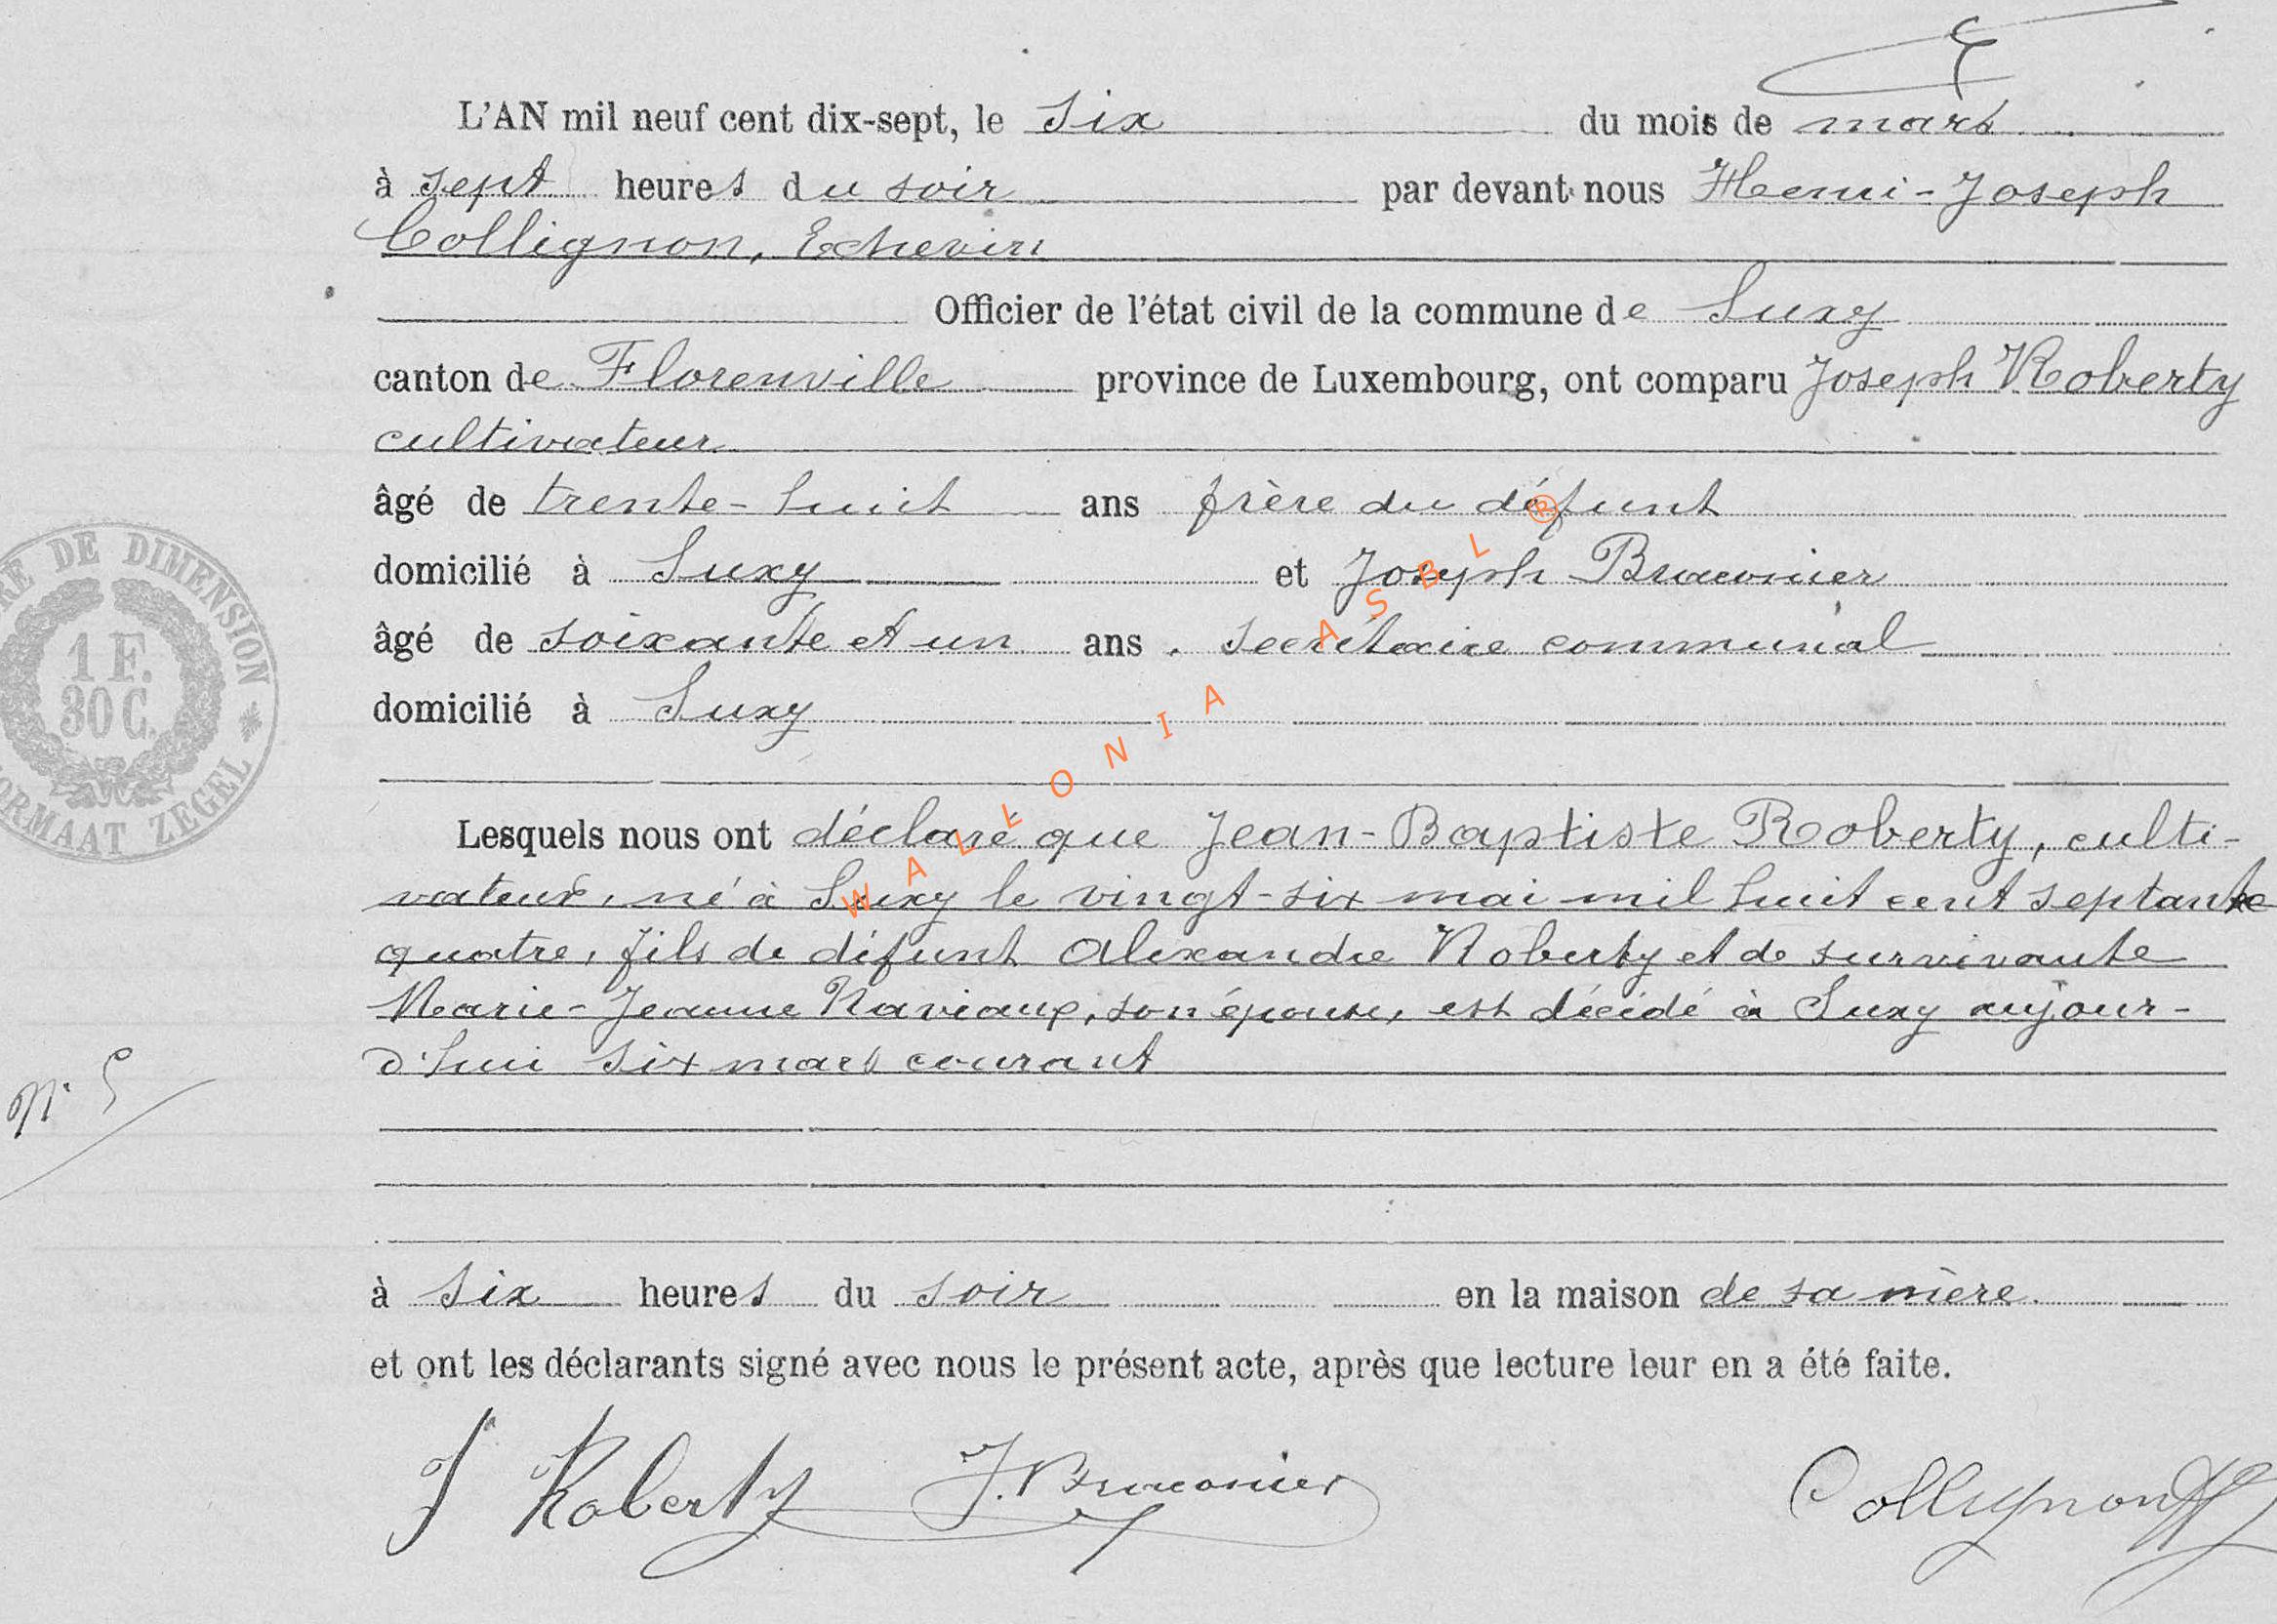 L'AN mil neuf cent dix-sept, le six du mois de mars
à sept heures du soir par devant nous Henri-Joseph
Collignon, Echevin
Officier de l'état civil de la commune de Suxy
canton de Florenville province de Luxembourg, ont comparu Joseph Roberty
cultivateur
âgé de trente-huit ans frère du défunt
domicilié à Suxy et Joseph Braconier
âgé de soixante et un ans. secrétaire communal
domicilié à Suxy
RE DE DIMENSION
1 F.
30 C.
ORMAAT ZEGEL
WALLONIA ASBL ®
Lesquels nous ont déclaré que Jean-Baptiste Roberty, culti-
vateur, né à Suxy le vingt-six mai mil huit cent septante
quatre, fils de défunt Alexandre Roberty et de survivante
Marie-Jeanne Naviaux, son épouse, est décédé à Suxy aujour-
d'hui six mars courant
N. 5
à six heures du soir en la maison de sa mère
et ont les déclarants signé avec nous le présent acte, après que lecture leur en a été faite.
J Roberty J. Braconier Collignon